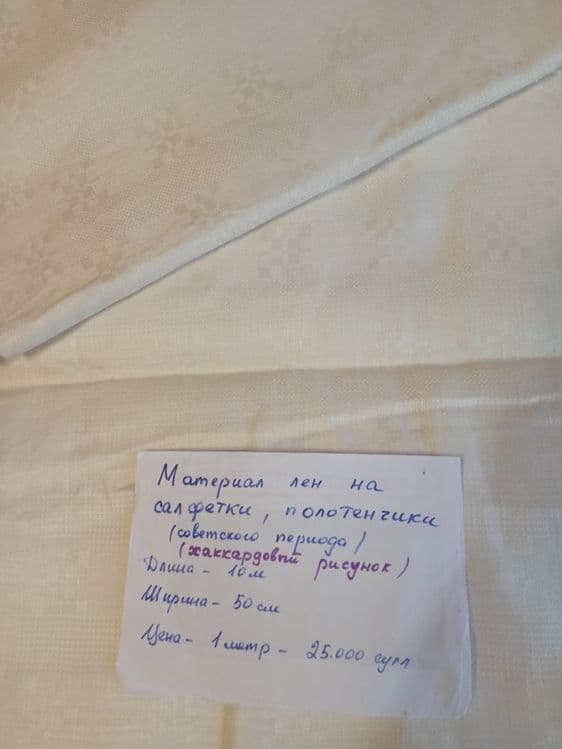 Материал лен на
салфетки, полотенчики
(советского периода)
(жаккардовый рисунок)
Длина - 10 м
Ширина - 50 см
Цена - 1 метр - 25.000 сумм